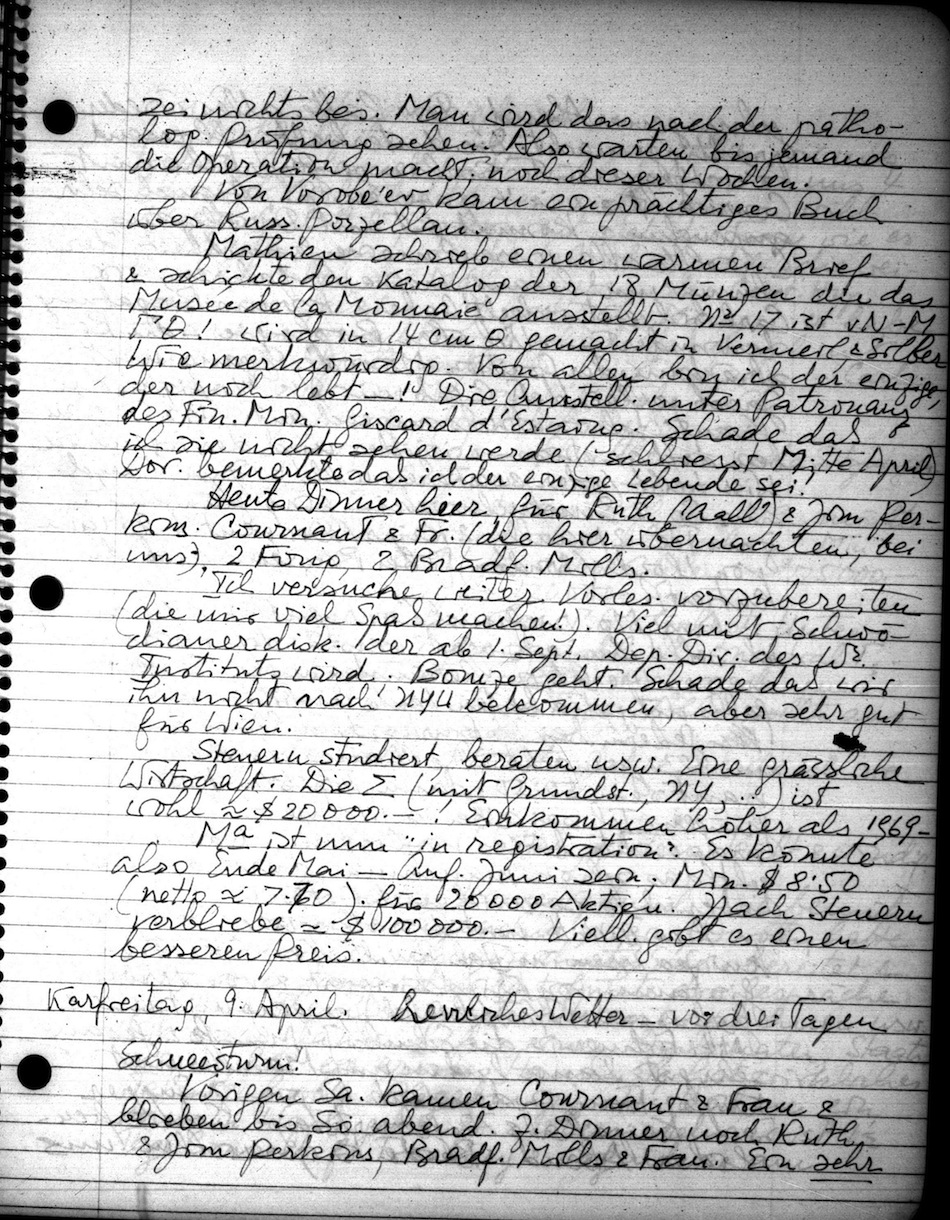 sei nichts bei. Man wird das nach der patho-
log. Prüfung sehen. Also warten bis jemand
die Operation macht, noch dieser Wochen.
Von Vorobe'ev kam ein prächtiges Buch
über Russ. Porzellan.
Mathieu schrieb einen warmen Brief
& schickte den Katalog der 18 Münzen die das
Musée de la Monnaie ausstellt. No 17 ist vN-M
wird in 14 cm gemacht in Vermeil & Silber
Wie merkwürdig. Von allen bin ich der einzige,
der noch lebt —! Die Ausstell. unter Patronanz
des Fin. Min. Giscard d'Estaing. Schade das
ich sie nicht sehen werde (schliesst Mitte April)
Dor. bemerkte das ich der einzige Lebende sei.
Heute Dinner hier für Ruth & Jim Per-
kins. Cournant & Fr. (die hier übernachten, bei
uns), 2 2 Bradf. Mills.
Ich versuche weiter Vorles. vorzubereiten
(die mir viel Spaß machen!). Viel mit Schwö-
diauer disk. der ab 1. Sept. Dep. Dir. des Wr.
Instituts wird. geht. Schade das wir
ihn nicht nach NYU bekommen, aber sehr gut
für Wien.
Steuern studiert, beraten usw. Eine grässliche
Wirtschaft. Die Σ (mit Grundst., NY, ...) ist
wohl ≈ $20000.–! Einkommen höher als 1969–
Ma ist nun "in registration". Es könnte
also Ende Mai – Anf. Juni sein; Min. $8.50
(netto ≈ 7.70) für 20000 Aktien. Nach Steuern
verbliebe ≈ $100000.– Viell. gibt es einen
besseren Preis.
Karfreitag, 9. April. Herrliches Wetter – vor drei Tagen
Schneesturm!
Vorigen Sa. kamen Cournant & Frau &
blieben bis So abend. Z. Dinner noch Ruth
& Jim Perkins, Bradf. Mills & Frau. Ein sehr